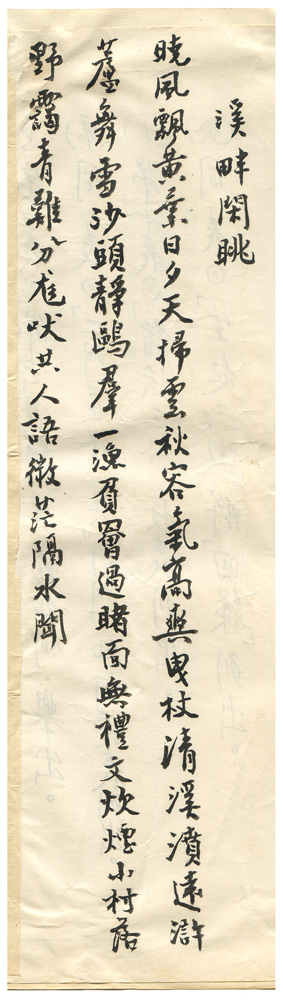 溪畔閑眺
曉風飄黃葉日夕天掃雲秋容氣高爽曳杖清溪濆遠滸
蘆舞雪沙頭靜鷗羣一漁負罾過睹面無禮文炊煙小村落
野靄青難分尨吠共人語微茫隔水聞